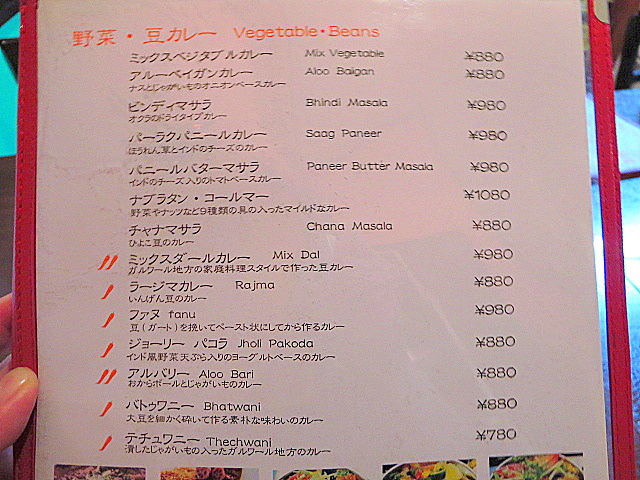 野菜・豆カレー Vegetable・Beans
ミックスベジタブルカレー Mix Vegetable ¥880
アルーベイガンカレー Aloo Baigan ¥880
ナスとじゃがいものオニオンベースカレー
ビンディマサラ Bhindi Masala ¥980
オクラのドライタイプカレー
パーラクパニールカレー Saag Paneer ¥980
ほうれん草とインドのチーズのカレー
パニールバターマサラ Paneer Butter Masala ¥980
インドのチーズ入りのトマトベースカレー
ナブラタン・コールマー ¥1080
野菜やナッツなど9種類の具の入ったマイルドなカレー
チャナマサラ Chana Masala ¥880
ひよこ豆のカレー
ミックスダールカレー Mix Dal ¥980
ガルワール地方の家庭料理スタイルで作った豆カレー
ラージマカレー Rajma ¥880
いんげん豆のカレー
ファヌ fanu ¥980
豆(ガート)を挽いてペースト状にしてから作るカレー
ジョーリー パコラ Jholi Pakoda ¥880
インド風野菜天ぷら入りのヨーグルトベースのカレー
アルバリー Aloo Bari ¥880
おからボールとじゃがいものカレー
バトゥワニー Bhatwani ¥880
大豆を細かく砕いて作る素朴な味わいのカレー
テチュワニー Thechwani ¥780
潰したじゃがいもの入ったガルワール地方のカレー